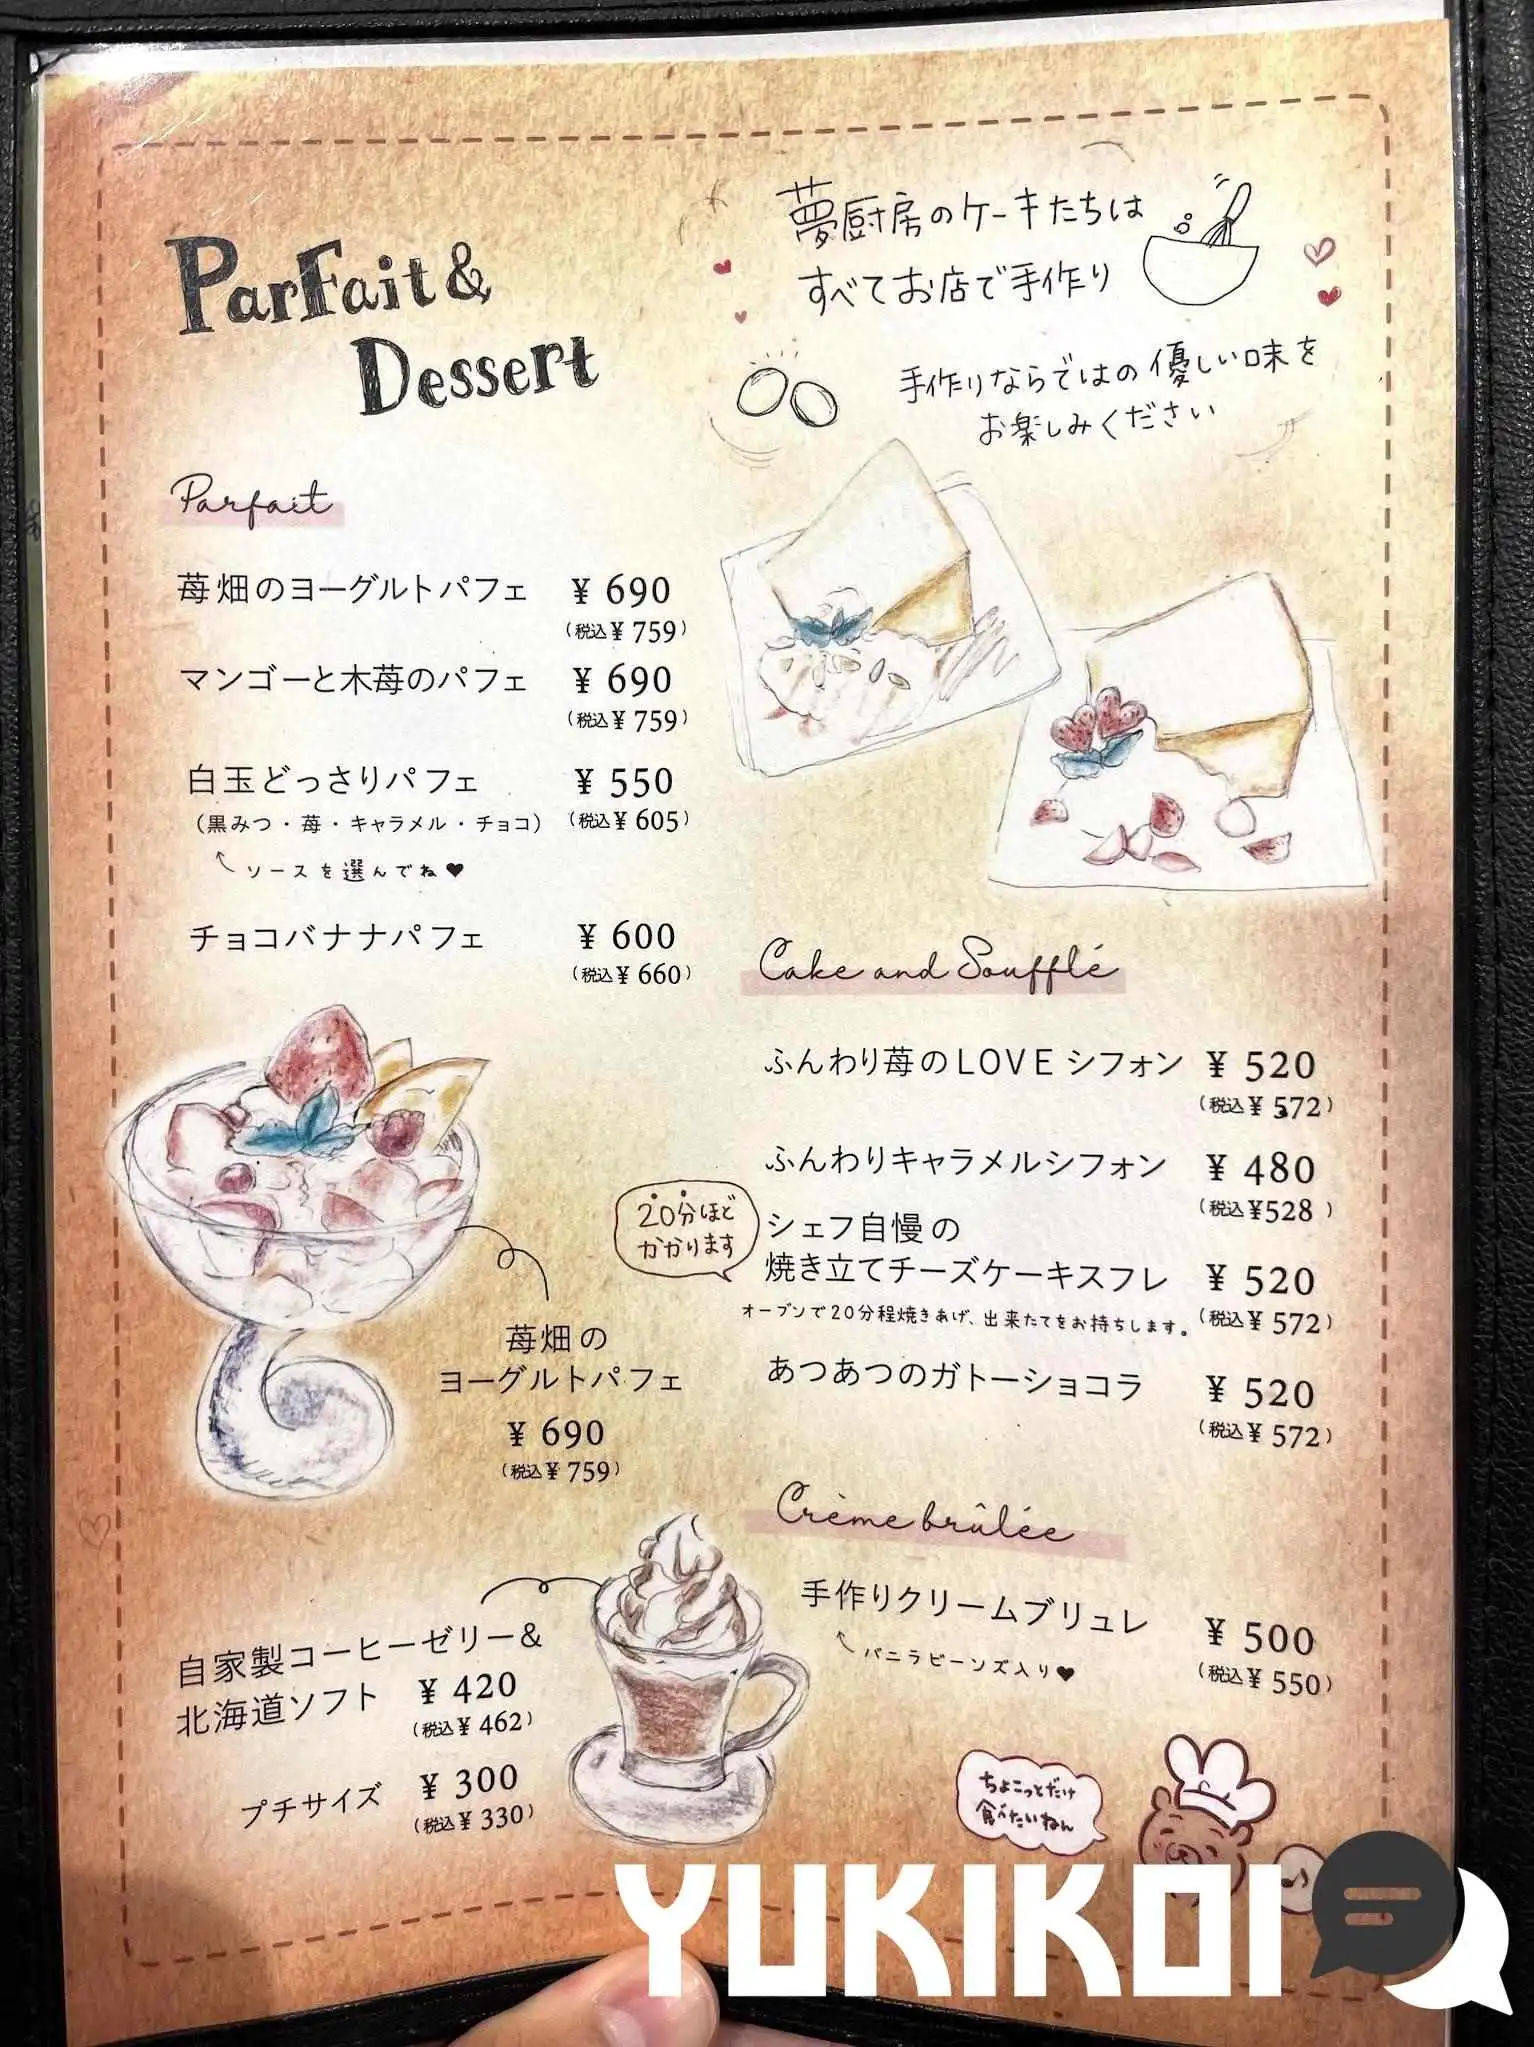 ParFait &
Dessert
夢厨房のケーキたちは
すべてお店で手作り
手作りならではの優しい味を
お楽しみください
Parfait
苺畑のヨーグルトパフェ ¥ 690
(税込¥ 759)
マンゴーと木苺のパフェ ¥ 690
(税込¥ 759)
白玉どっさりパフェ ¥ 550
(黒みつ・苺・キャラメル・チョコ) (税込¥ 605)
ソースを選んでね♥
チョコバナナパフェ ¥ 600
(税込¥ 660)
苺畑の
ヨーグルトパフェ
¥ 690
(税込¥ 759)
自家製コーヒーゼリー&
北海道ソフト ¥ 420
(税込¥ 462)
プチサイズ ¥ 300
(税込¥ 330)
Cake and Soufflé
ふんわり苺のLOVEシフォン ¥ 520
(税込¥ 572)
ふんわりキャラメルシフォン ¥ 480
(税込¥528 )
20分ほど
かかります
シェフ自慢の
焼き立てチーズケーキスフレ ¥ 520
オーブンで20分程焼きあげ、出来たてをお持ちします。 (税込¥ 572)
あつあつのガトーショコラ ¥ 520
(税込¥ 572)
Crème brûlée
手作りクリームブリュレ ¥ 500
バニラビーンズ入り♥ (税込¥ 550)
ちょこっとだけ
食べたいねん
YUKIKOI